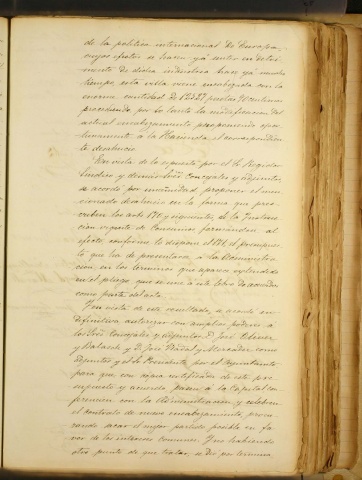 de la política internacional de Europa,
cuyos efectos se hacen ya sentir en detri-
mento de dicha industria hace ya mucho
tiempo, esta villa viene encabezada con la
enorme cantidad de pesetas céntimos
procediendo, por lo tanto la modificación del
actual encabezamiento, proponiendo opor-
tunamente á la Hacienda el correspondien-
te desahucio.
En vista de lo expuesto por el Sr. Regidor
Síndico y demás Sres Concejales y adjuntos,
se acordó por unanimidad proponer el men-
cionado desahucio en la forma que pres-
criben los arts y siguientes, de la Instruc-
ción vigente de Consumos formándose al
efecto, conforme lo dispone el el presupues-
to que ha de presentarse á la Administra-
ción, en los términos que aparece extendido
en el pliego que se une á este libro de acuerdos
como parte del acta.
Y en vista de este resultado, se acordó en
definitiva autorizar con amplios poderes á
los Sres Concejales y adjuntos, D. José
y y D. José y como
adjuntos y el Sr Presidente por el Ayuntamiento
para que con copia certificada de este pre-
supuesto y acuerdo pasen á la Capital con-
ferencien con la Administración y celebren
el contrato de nuevo encabezamiento, procu-
rando sacar el mejor partido posible en fa-
vor de los intereses comunes. Y no habiendo
otro punto de que tratar, se dió por termina